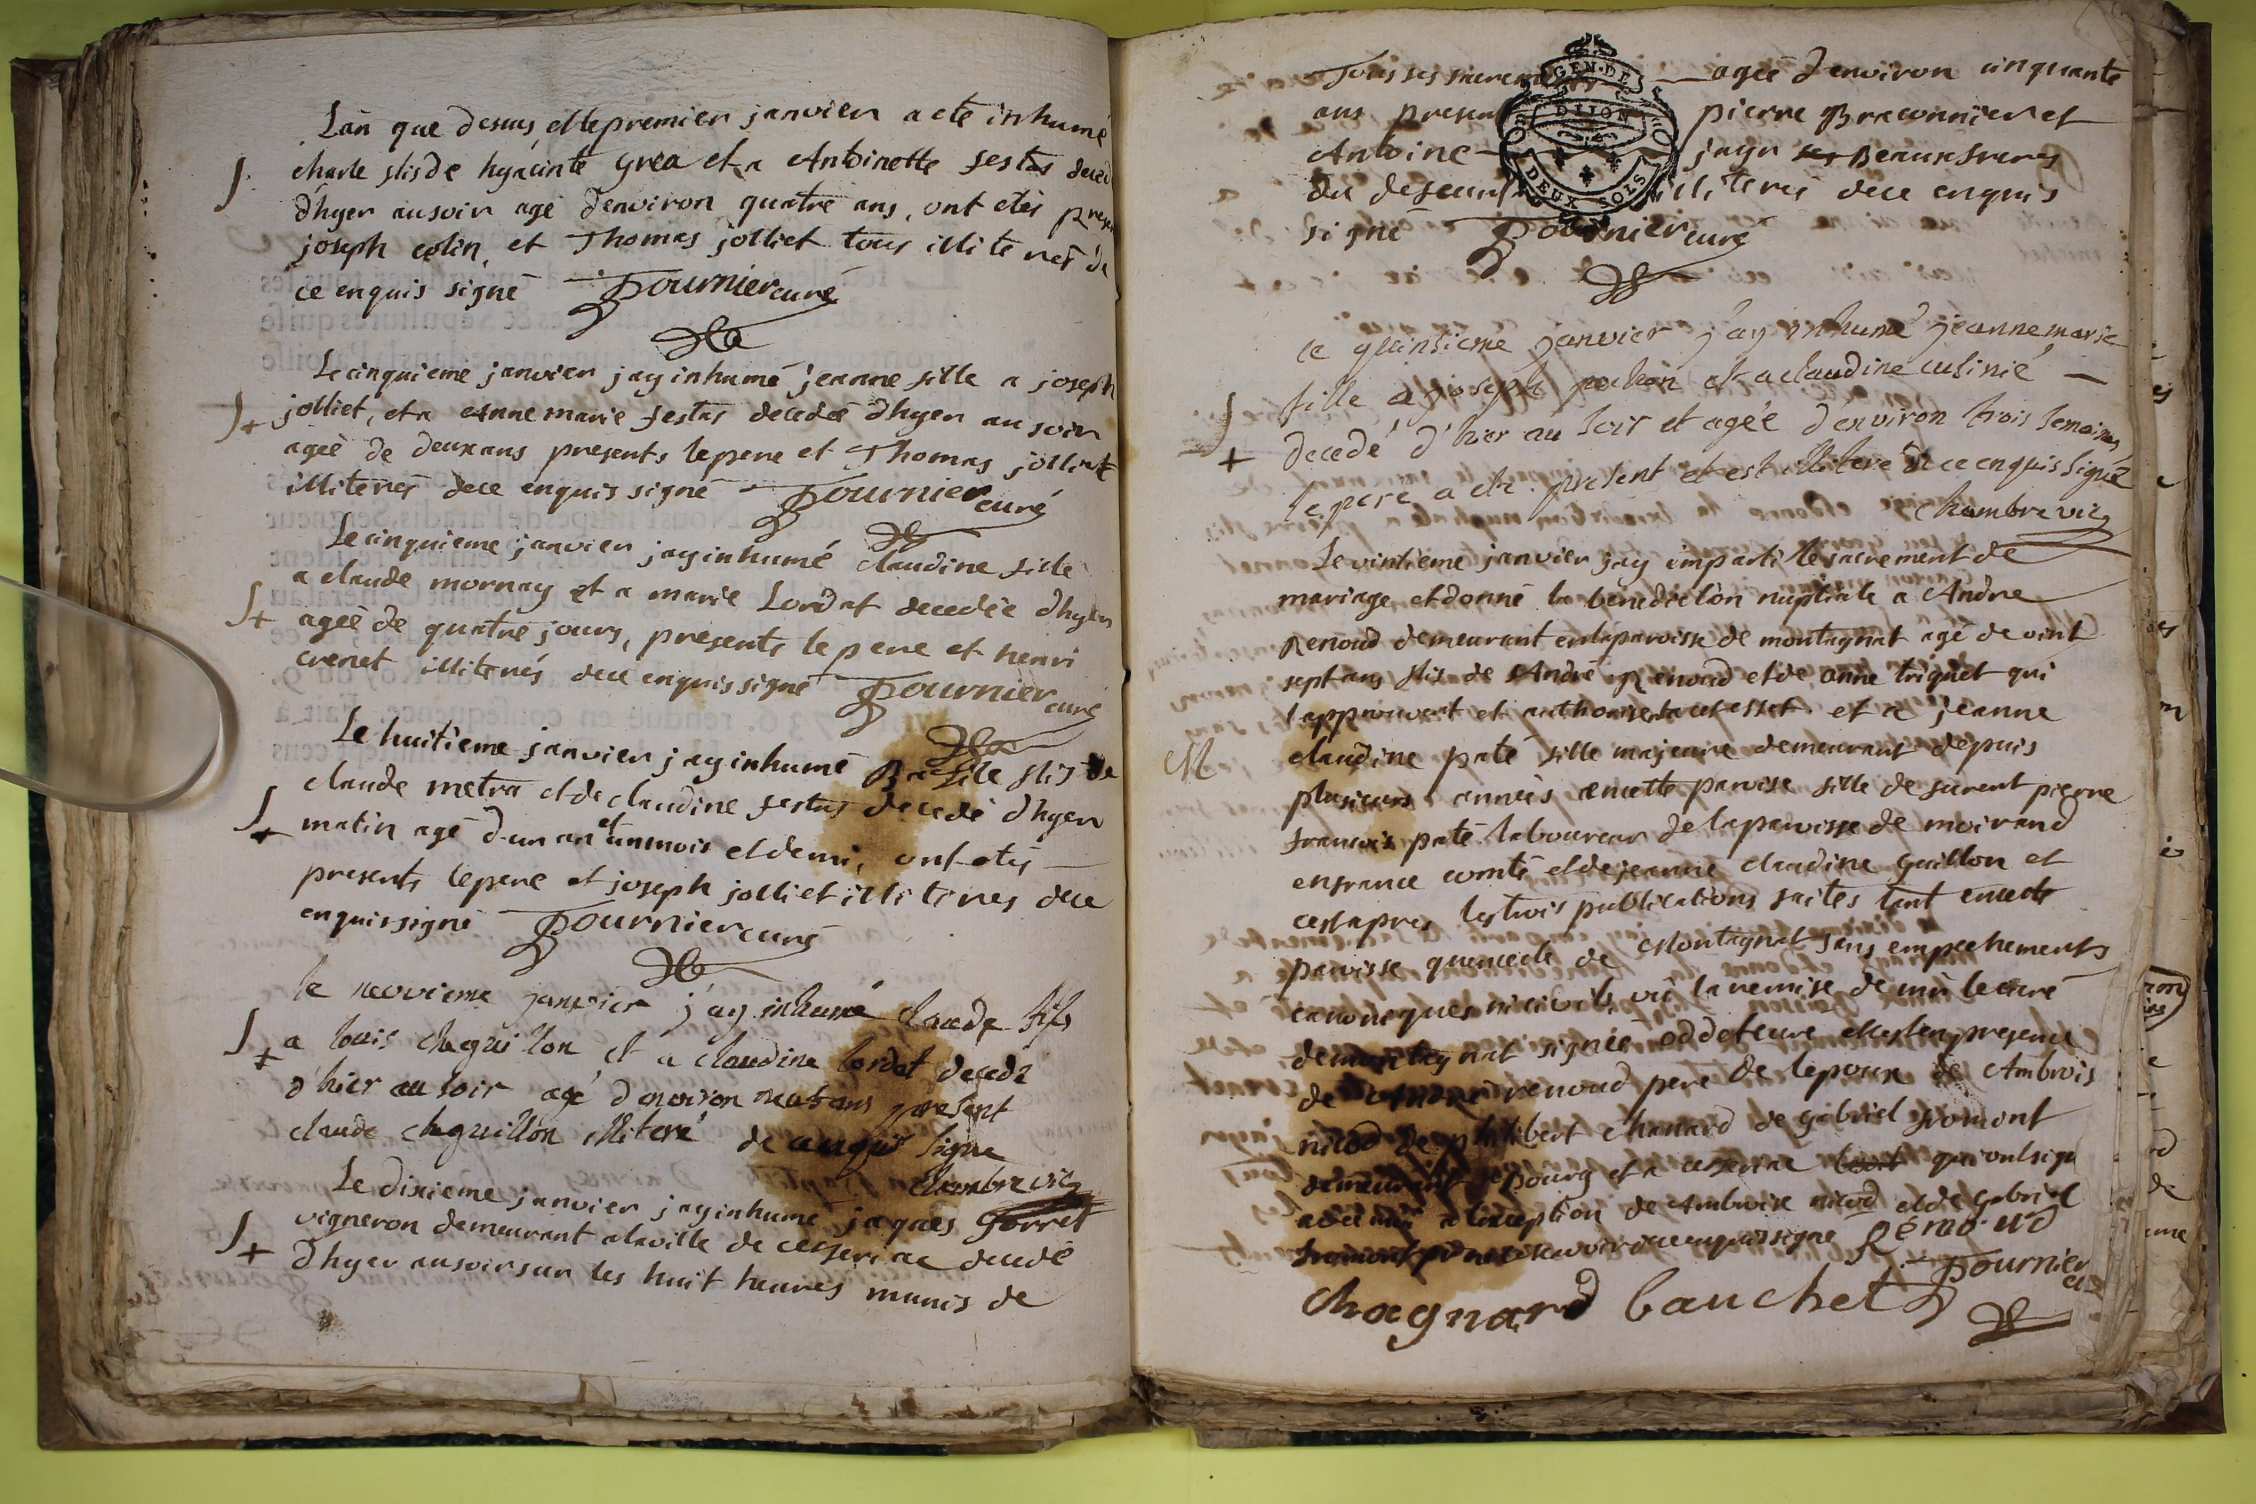 L'an que desus et le premier janvier a eté inhumé
S. charle fils de hyacinte grea et a Antoinette festas decedé
d'hyer au soir agé d'environ quatre ans, ont etés presen
joseph colin, et Thomas jolliet tous illiterés de
ce enquis signé Fournier curé
Le cinquieme janvier jay inhumé jeanne fille a joseph
S+ jolliet, et a Anne marie festas decedeé dhyer au soir
ageé de deux ans presents le pere et Thomas jolliet
illiterés dece enquis signé Fournier curé
Le cinquieme janvier jay inhumé claudine fille
a claude mornay et a marie Lordat decedeé dhyer
S+ ageé de quatre jours, presents le pere et henri
crenet illiterés dece enquis signé Fournier curé
Le huitieme janvier jay inhumé Basile fils de
claude metra et de claudine festas decedé dhyer
S+ matin agé d'un an et un mois et demi, ont etés
presents le pere et joseph jolliet illiterés dece
enquis signé Fournier curé
le neuvieme janvier j'ay inhumé claude fils
S+ a louis chaguillon et a claudine lordat decedé
d'hier au soir agé d'environ neuf ans present
claude chaguillon illiteré de ce enquis signe
chambre vic
Le dixieme janvier jay inhumé jaques Gorret
S+ vigneron demeurant a la ville de ceyseriac decedé
d'hyer au soir sur les huit heures munis de
tous ses sacrem ageé d'environ cinquante
ans presen pierre Braconnier et
Antoine jayr ses Beaux freres
du defeunt illiterés dece enquis
signé Fournier curé
GEN. DE DIJON
DEUX SOLS
le quinsieme janvier j'ay inhumé jeanne marie
fille a joseph pochon et a claudine cusinié
S+ decedé d'hier au soir et ageé d'environ trois semaines
le pere a eté present et est illiteré de ce enquis signé
chambre vic
Le vintieme janvier jay imparti le sacrement de
mariage et donné la benediction nuptiale a Andre
Renoud demeurant en la paroisse de montagnat agé de vint
sept ans fils de André Renoud et de anne triquet qui
l'approuvent et authorisent a cet effet et a jeanne
M claudine paté fille majeure demeurant depuis
plusieurs anneés en cette paroisse fille de furent pierre
francois paté laboureur de la paroisse de moirand
en france comté et de jeanne claudine Guillon et
ce et apres les trois publications faites tant en cette
paroisse qu'en celle de Montagnat sans empechements
canoniques ni civils, vû la remise de mr le curé
de montagnat signée oddeteure et en presence
de Andre renoud pere de lepoux de Ambrois
nicod de philibert chanard de gabriel fromont
demeurant a Bourg et a ceyseriac qui ont signé
avec moi a l'exception de Ambroise nicod et de gabriel
fromont pour ne scavoir de ce enquis signe Rénoud
Fournier curé
Chagnard bauchet